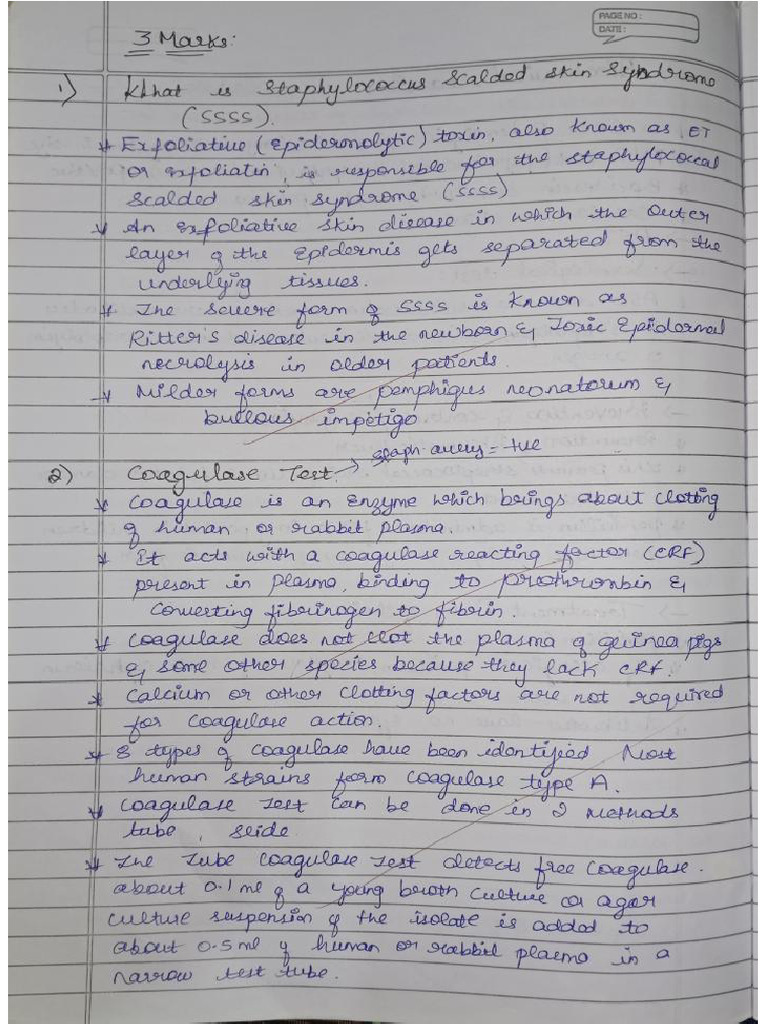 PAGE NO:
DATE:
3 Marks:
1) What is Staphylococcus Scalded skin Syndrome
(SSSS).
* Exfoliative (Epidermolytic) toxin, also known as ET
or exfoliatin, is responsible for the staphylococcal
scalded skin syndrome (SSSS)
* An exfoliative skin disease in which the outer
layer of the epidermis gets separated from the
underlying tissues.
* The severe form of SSSS is known as
Ritter's disease in the newborn & Toxic Epidermal
necrolysis in older patients.
* Milder forms are pemphigus neonatorum &
bullous impetigo
2) Coagulase Test. → staph. aureus = +ve
* Coagulase is an enzyme which brings about clotting
of human or rabbit plasma.
* It acts with a coagulase reacting factor (CRF)
present in plasma, binding to prothrombin &
converting fibrinogen to fibrin.
* Coagulase does not clot the plasma of guinea pigs
& some other species because they lack CRF.
* Calcium or other clotting factors are not required
for coagulase action.
* 8 types of coagulase have been identified Most
human strains form coagulase type A.
* Coagulase Test can be done in 2 methods
tube, slide
* The Tube coagulase Test detects free coagulase.
about 0.1 ml of a young broth culture or agar
culture suspension of the isolate is added to
about 0.5 ml of human or rabbit plasma in a
narrow test tube.